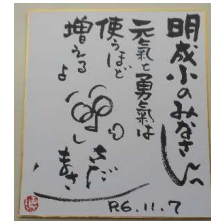 明成小のみなさんへ
元氣と勇氣は
使うほど
増えるよ
きだ
まさし
R6.11.7